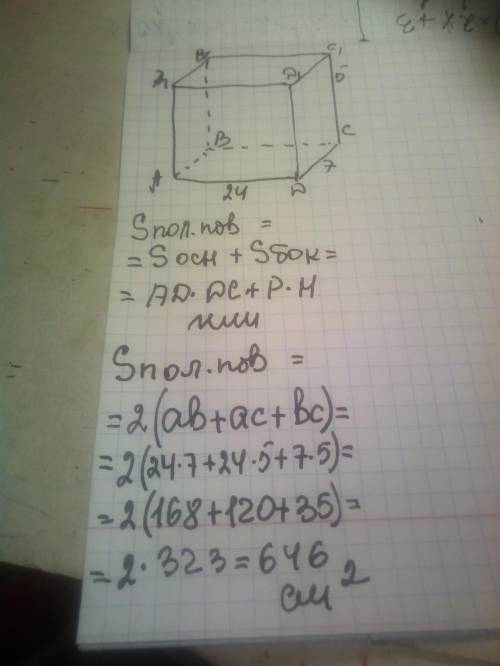 B₁ C₁
A₁ D₁ 5
B C
7
A D
24
Sпол.пов =
= Sосн + Sбок =
= AD·DC+P·H
или
Sпол.пов =
= 2(ab+ac+bc)=
= 2(24·7+24·5+7·5)=
= 2(168+120+35)=
= 2·323=646
см²